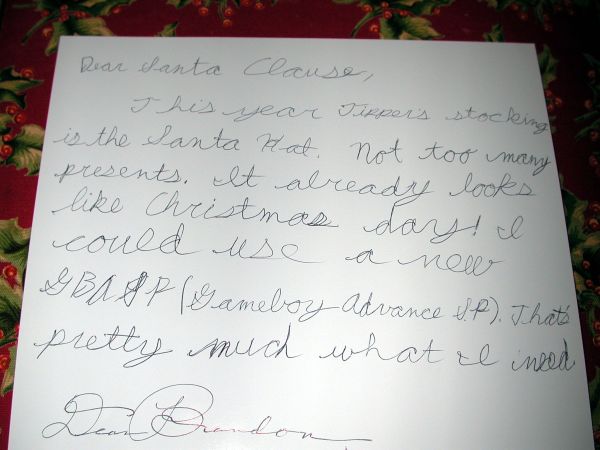 Dear Santa Clause,
This year Tipper's stocking
is the Santa Hat. Not too many
presents. It already looks
like Christmas day! I
could use a new
GBA SP (Gameboy Advance SP). That's
pretty much what I need
Brandon